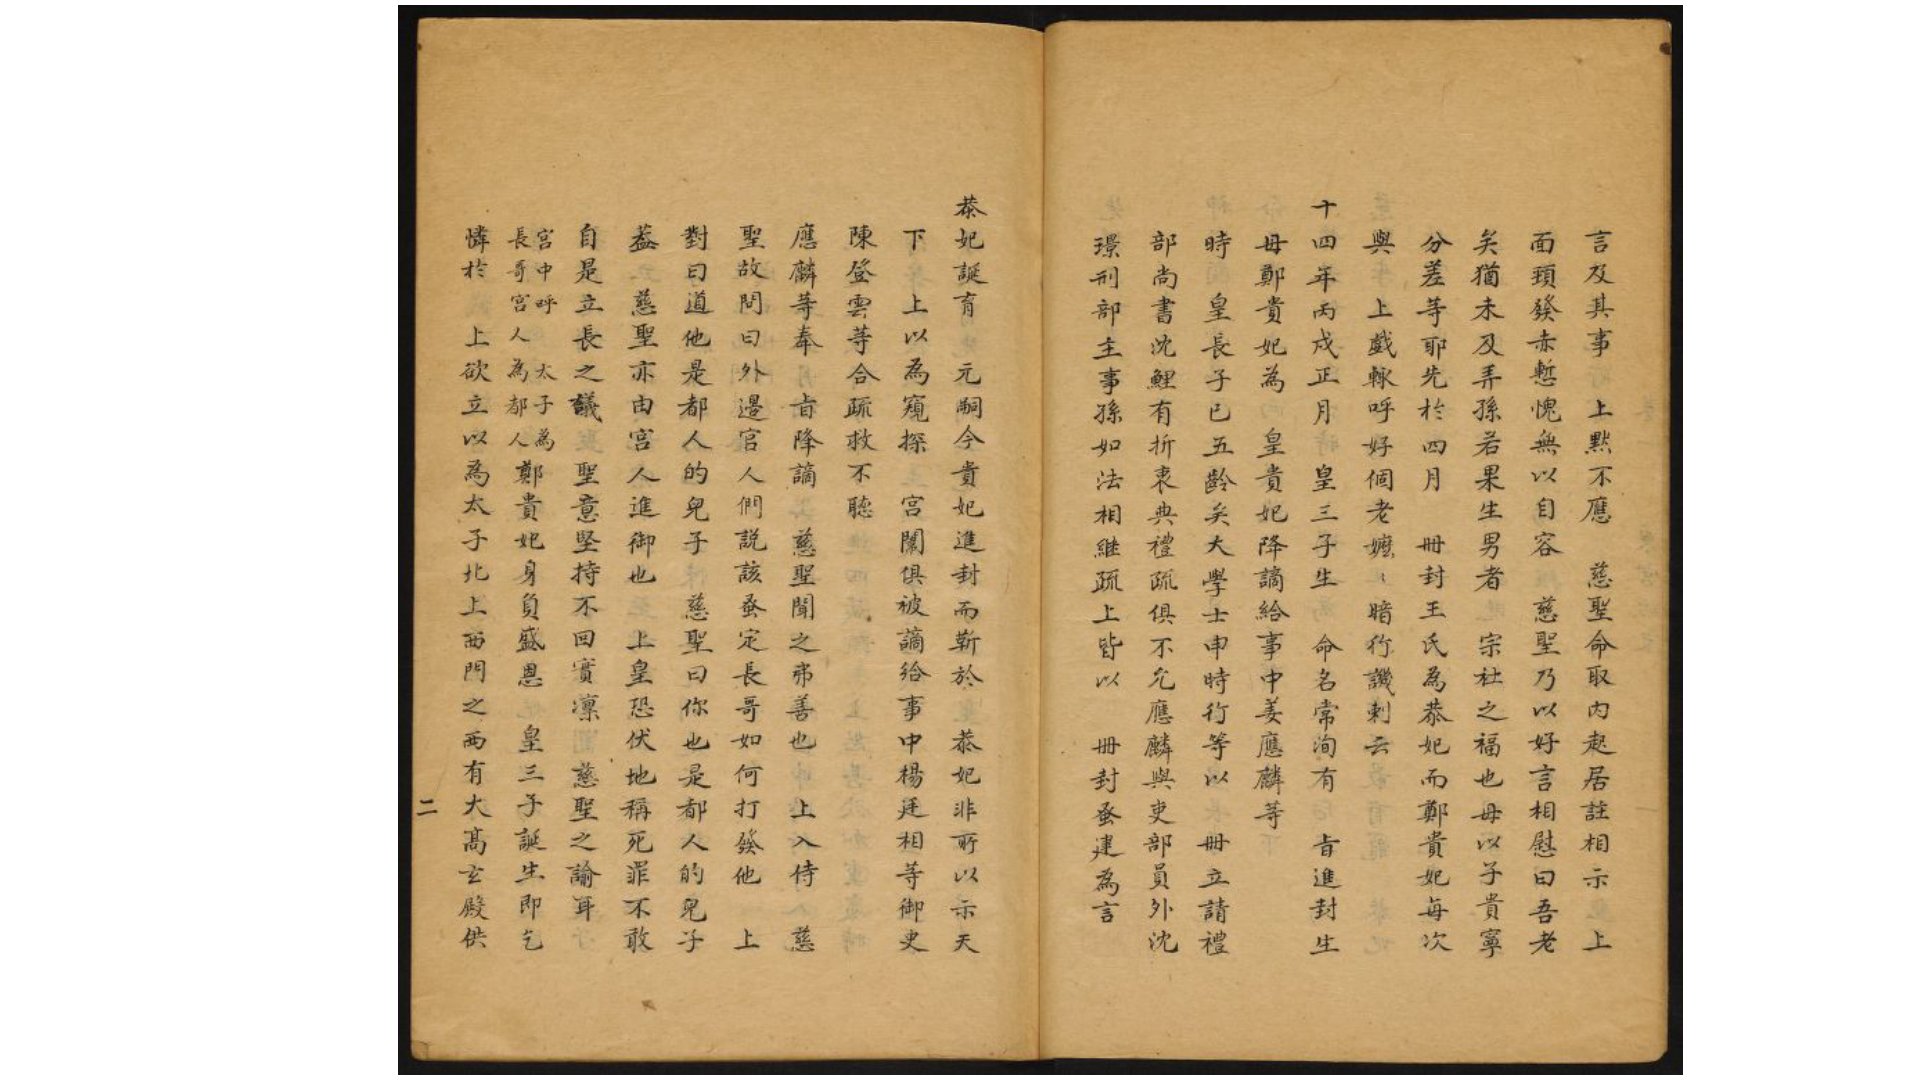 言及其事　上默不應　慈聖命取內起居註相示　上
面頸發赤慙愧無以自容　慈聖乃以好言相慰曰吾老
矣猶未及弄孫若果生男者　宗社之福也母以子貴寧
分差等耶先於四月　冊封王氏為恭妃而鄭貴妃每次
與　上戲輒呼好個老嬤〻暗行譏刺云
十四年丙戌正月　皇三子生　命名常洵有　旨進封生
母鄭貴妃為　皇貴妃降謫給事中姜應麟等
時　皇長子已五齡矣大學士申時行等以　冊立請禮
部尚書沈鯉有折衷典禮疏俱不允應麟與吏部員外沈
璟刑部主事孫如法相繼疏上皆以　冊封蚤建為言
恭妃誕育　元嗣今貴妃進封而靳於　恭妃非所以示天
下　上以為窺探　宮闈俱被謫給事中楊廷相等御史
陳登雲等合疏救不聽
應麟等奉　旨降謫　慈聖聞之弗善也　上入侍　慈
聖故問曰外邊官人們説該蚤定長哥如何打發他　上
對曰道他是都人的兒子　慈聖曰你也是都人的兒子
蓋　慈聖亦由宮人進御也　上皇恐伏地稱死罪不敢
自是立長之議　聖意堅持不回實凜　慈聖之諭耳
宮中呼　太子為
長哥宮人為都人
鄭貴妃身負盛恩　皇三子誕生即乞
憐於　上欲立以為太子北上西門之西有大髙玄殿供
二